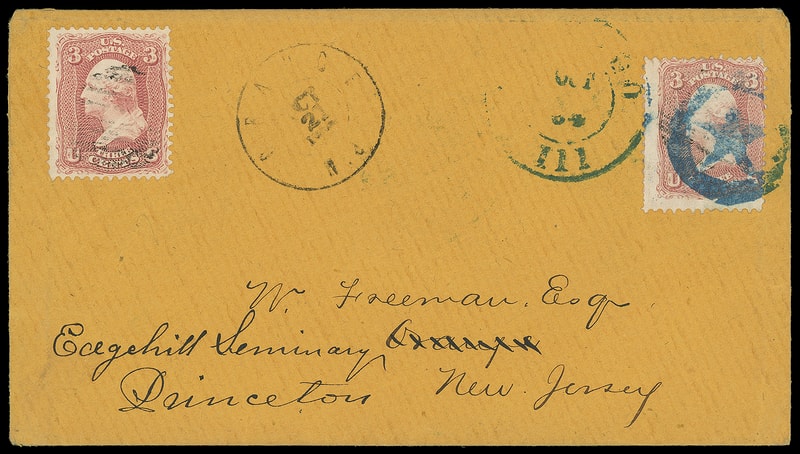 3 U.S. POSTAGE 3
U THREE CENTS
ORANGE N.J.
OCT
21
Ill
3 U.S. POSTAGE
U
W. Freeman, Esq
Edgehill Seminary
Princeton New Jersey